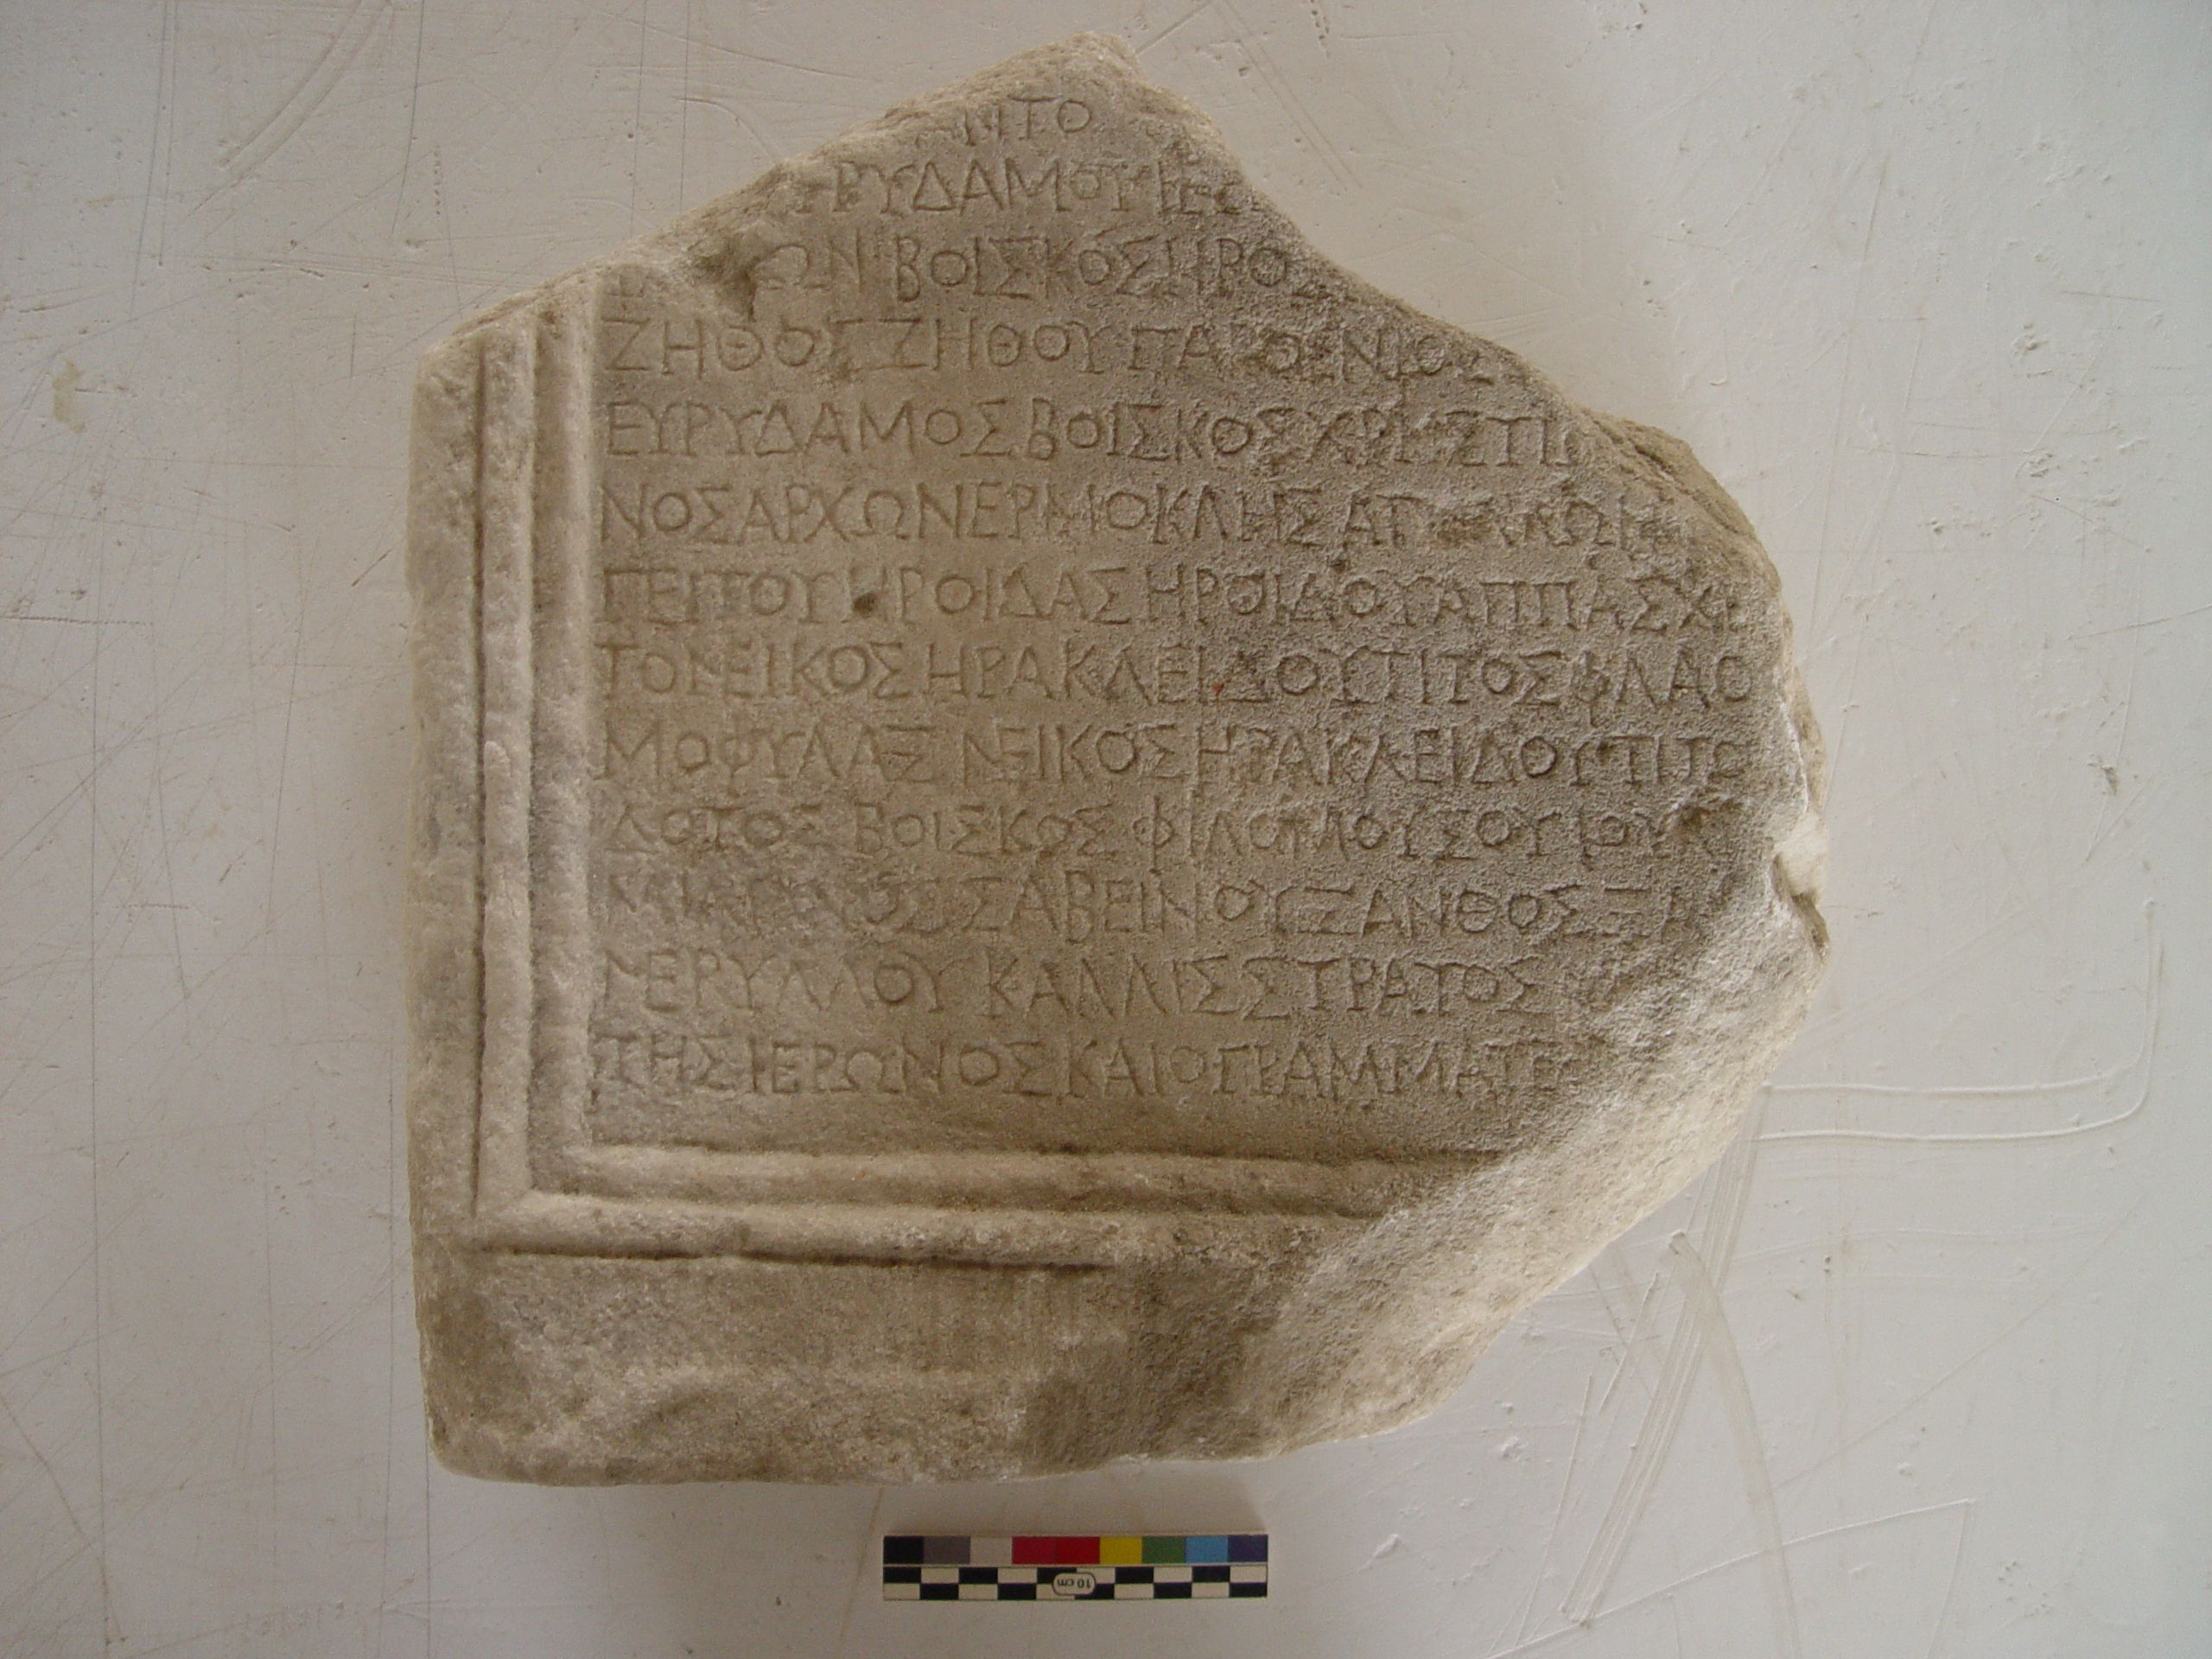 ΝΤΟ
ΡΥΔΑΜΟΥ
ΩΝ ΒΟΙΣΚΟΣ ΗΡΟ
ΖΗΘΟΣ ΖΗΘΟΥ ΠΑΡΘΕΝΙΟΣ
ΕΥΡΥΔΑΜΟΣ ΒΟΙΣΚΟΣ ΧΡΗΣΤΙ
ΝΟΣ ΑΡΧΩΝ ΕΡΜΟΚΛΗΣ
ΓΕΙΤΟΥ ΗΡΟΙΔΑΣ ΗΡΟΙΔΟΥ ΑΠΠΑΣ ΧΡ
ΤΟΝΕΙΚΟΣ ΗΡΑΚΛΕΙΔΟΥ ΤΙΤΟΣ ΦΛΑΟ
ΜΟΦΥΛΑΞ ΝΕΙΚΟΣ ΗΡΑΚΛΕΙΔΟΥ ΤΙΤΟ
ΔΟΤΟΣ ΒΟΙΣΚΟΣ ΦΙΛΟΜΟΥΣΟΥ ΙΟΥ
ΣΑΒΕΙΝΟΥ ΞΑΝΘΟΣ ΞΑ
ΜΕΡΥΛΛΟΥ ΚΑΛΛΙΣΣΤΡΑΤΟΣ
ΤΗΣ ΙΕΡΩΝΟΣ ΚΑΙ Ο ΓΡΑΜΜΑΤΕ